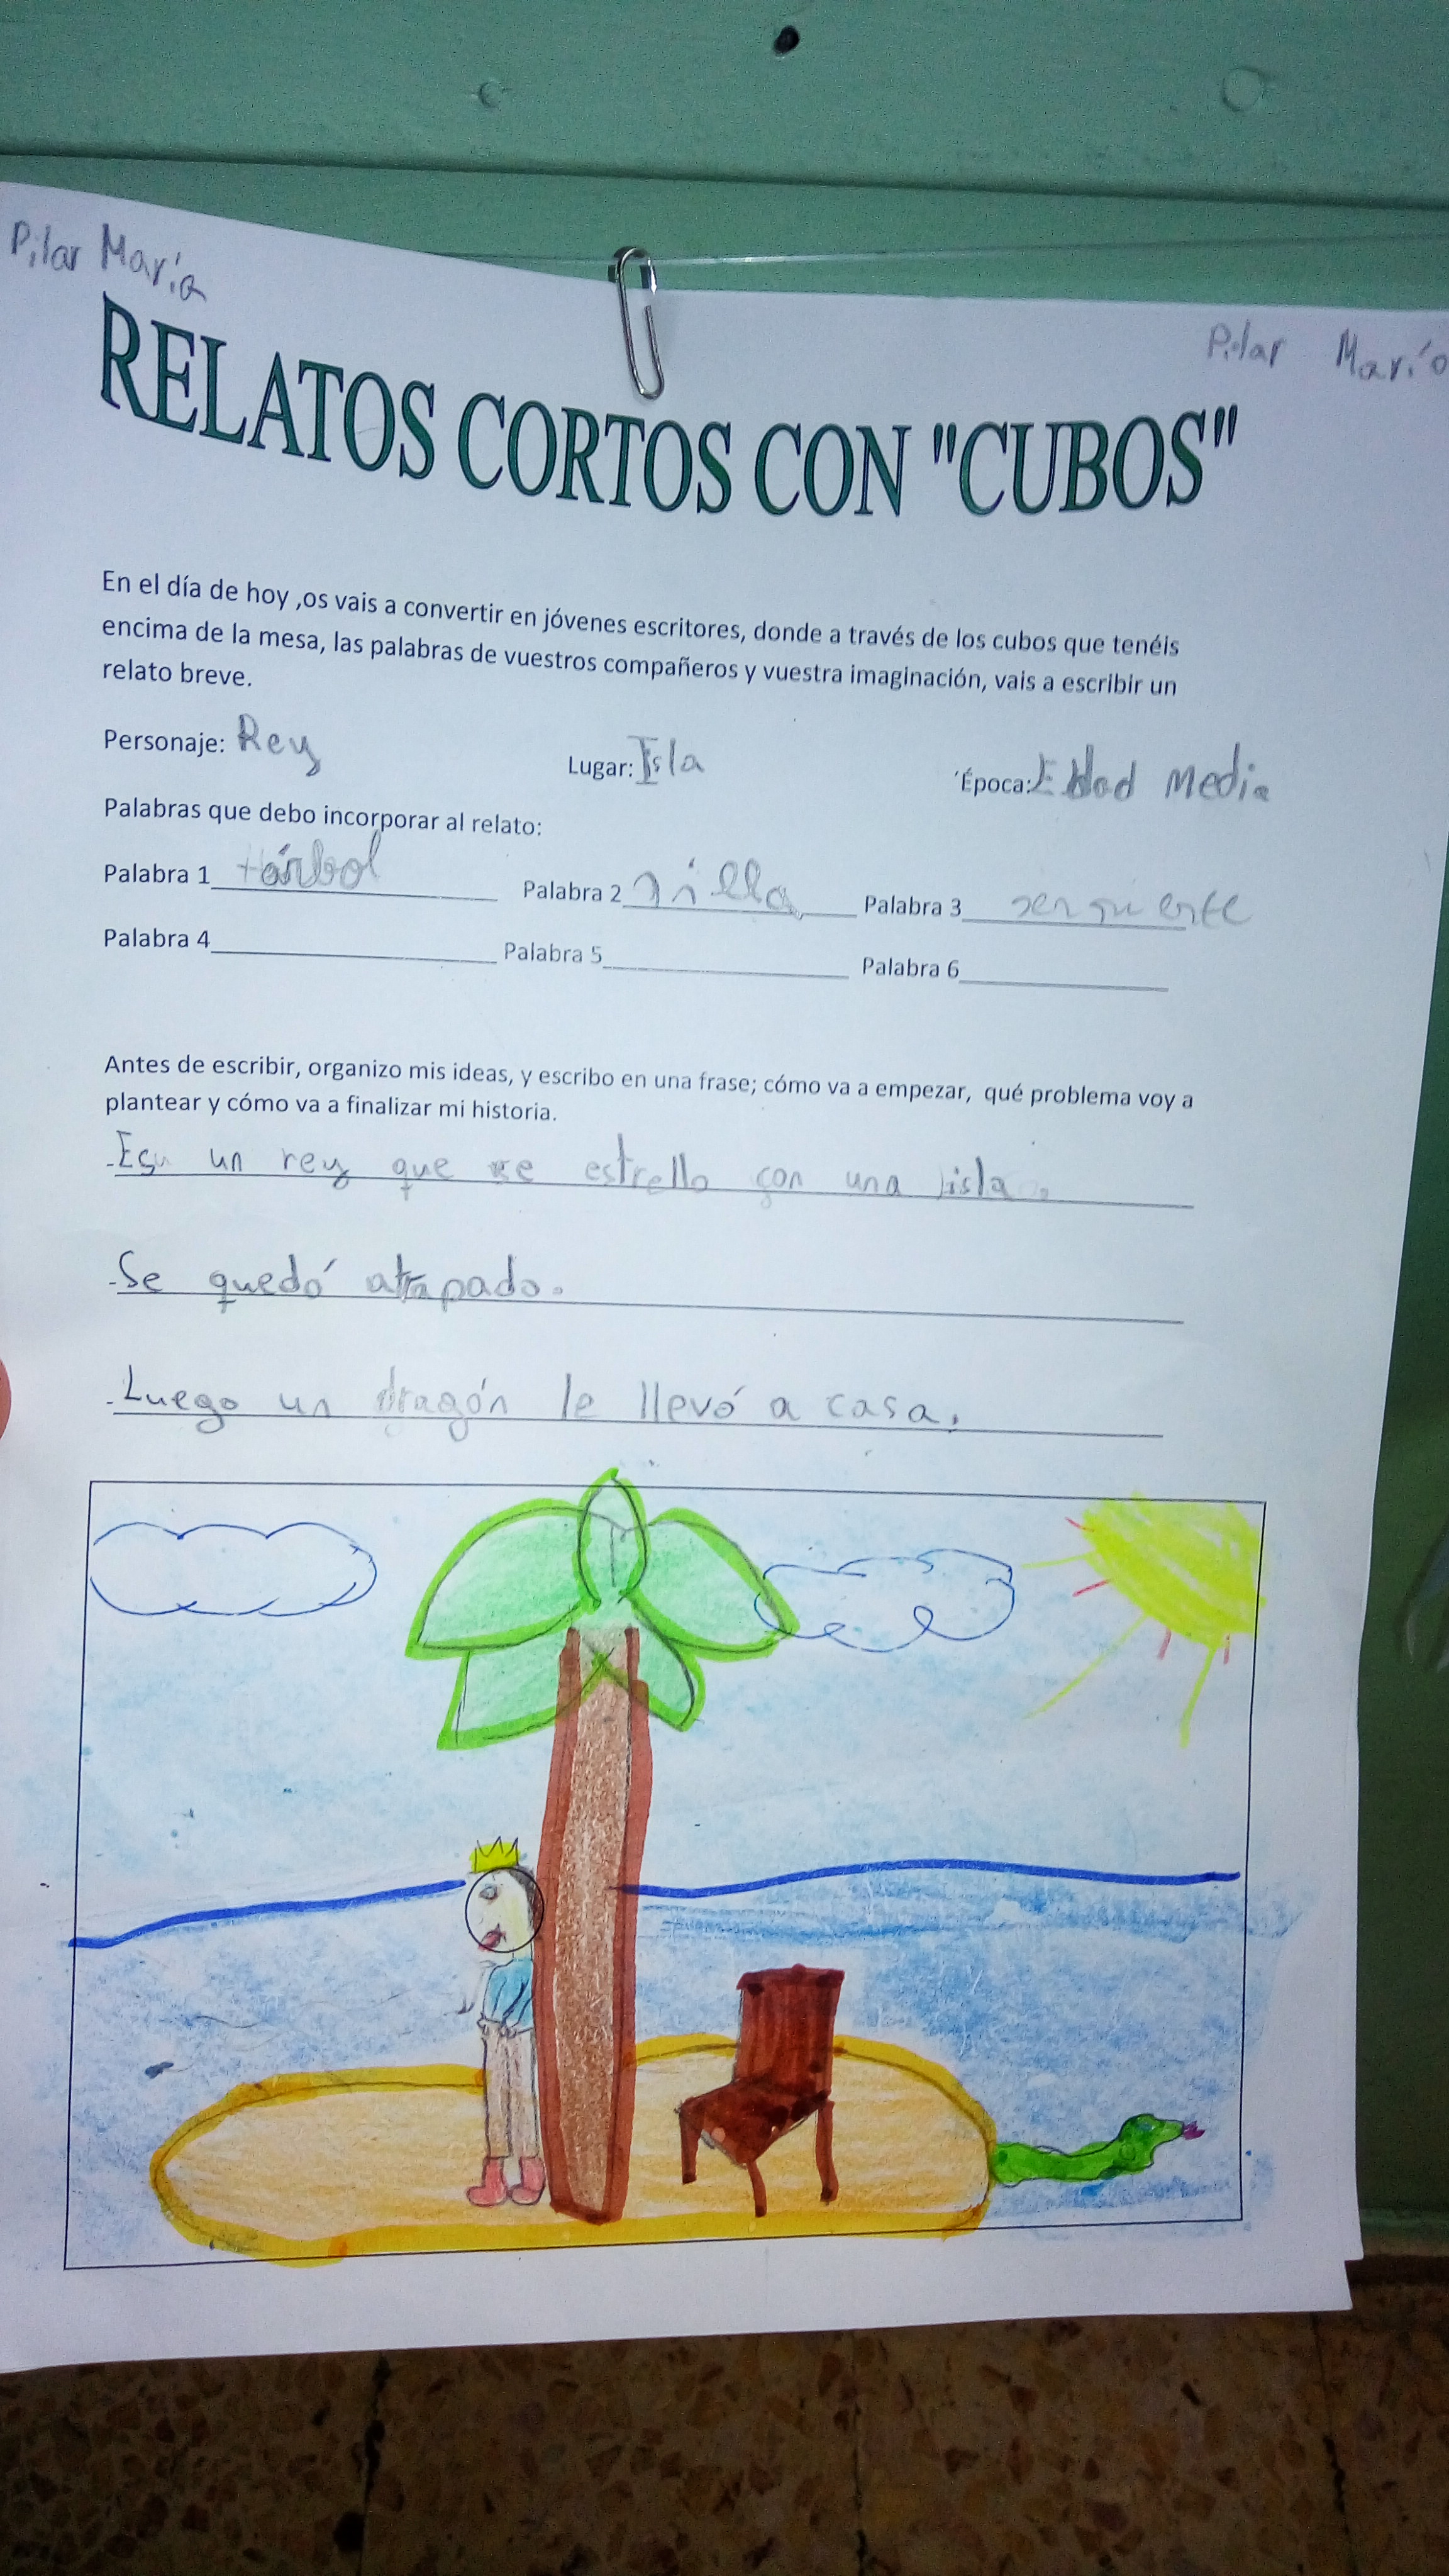 Pilar María
Pilar María
RELATOS CORTOS CON "CUBOS"
En el día de hoy ,os vais a convertir en jóvenes escritores, donde a través de los cubos que tenéis
encima de la mesa, las palabras de vuestros compañeros y vuestra imaginación, vais a escribir un
relato breve.
Personaje: Rey Lugar: Isla ´Época: Edad Media
Palabras que debo incorporar al relato:
Palabra 1 árbol Palabra 2 silla Palabra 3
Palabra 4 Palabra 5 Palabra 6
Antes de escribir, organizo mis ideas, y escribo en una frase; cómo va a empezar, qué problema voy a
plantear y cómo va a finalizar mi historia.
-Es un rey que se estrello con una isla.
-Se quedó atrapado.
-Luego un dragón le llevó a casa.